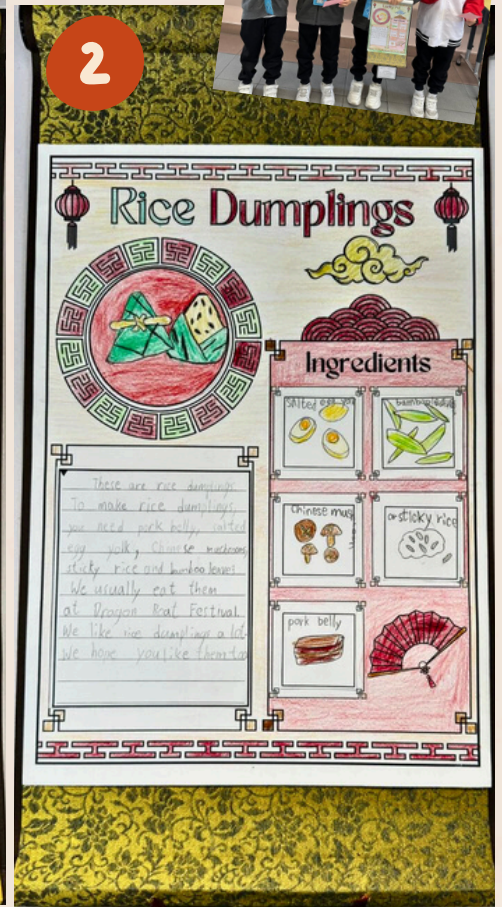 2
Rice Dumplings
Ingredients
salted egg
bamboo
Chinese mus
sticky rice
pork belly
These are rice dumplings.
To make rice dumplings,
you need pork belly, salted
egg yolk, Chinese mushrooms,
sticky rice and bamboo leaves.
We usually eat them
at Dragon Boat Festival.
We like rice dumplings a lot.
We hope you like them too